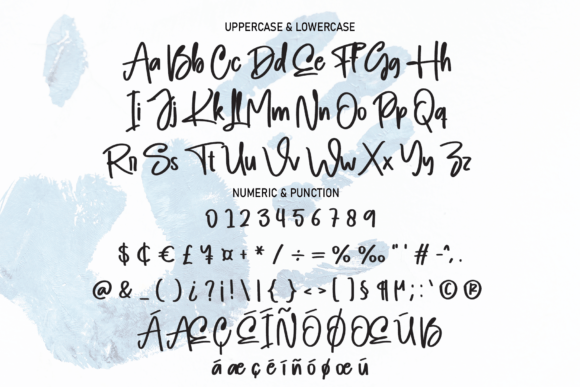 UPPERCASE & LOWERCASE
Aa Bb Cc Dd Ee Ff Gg Hh
Ii Jj Kk Ll Mm Nn Oo Pp Qq
Rr Ss Tt Uu Vv Ww Xx Yy Zz
NUMERIC & PUNCTION
0 1 2 3 4 5 6 7 8 9
$ ₵ € £ ¥ ¤ + * / ÷ = % ‰ " ' # - ^ , .
@ & _ ( ) ¿ ? ¡ ! \ | { } < > [ ] § ¶ µ ; : ` © ®
Á Æ Ç É Í Ñ Ó Ø Œ Ú ß
á æ ç é í ñ ó ø œ ú